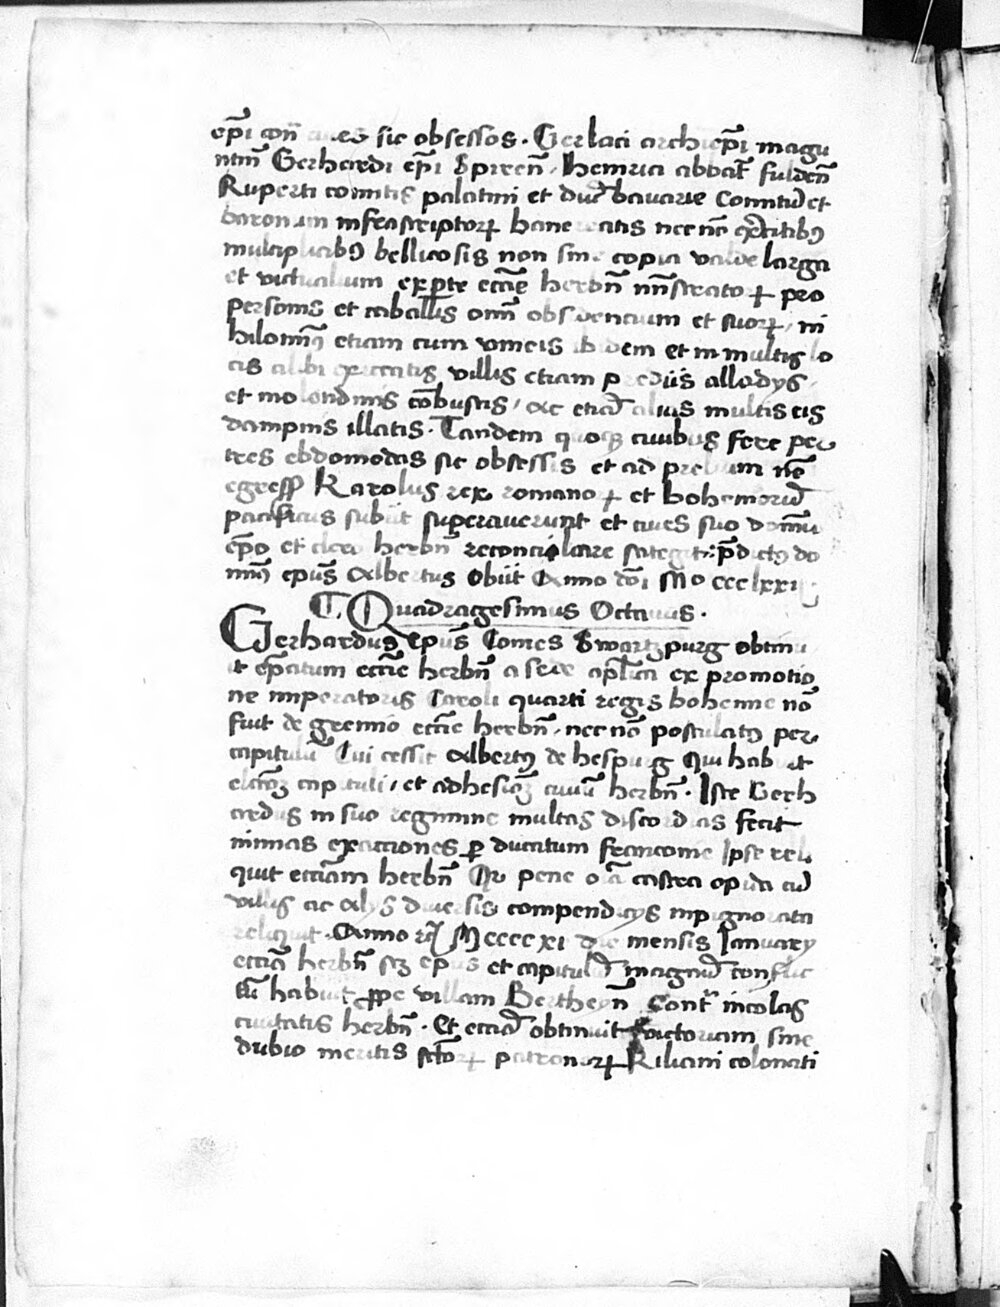 ep̄i con̄ ciues sic obsessos. Gerlaci archiep̄i magu
ntin̄ Gerhardi ep̄i Spiren̄ Henrici abbat̄ fulden̄
Ruperti comitis palatini et duc̄ bavarie Comitū et
baronum infrascriptoꝝ hanc ciuitatis nec nō
multiplicibꝰ bellicosis non sine copia valde larga
et victualium ex ꝑte eccl̄e herbn̄ mīstratoꝝ pro
personis et caballis om̄i obsidencium et suoꝝ, ni
hilominꝰ etiam cum vineis ibidem et in multis lo
cis alibi villis etiam prediis allodys,
et molendinis cōbustis, ac etiā alius multis eis
dampnis illatis. Tandem quoqꝫ ciuibus fere per
tres ebdomodas sic obsessis et ad prelium nō
egress̄ Karolus rex romanoꝝ et bohemorū
pacificus subiit superauerunt et ciues suo domīo
ep̄o et clero herbn̄ reconciliare sategit: p̄dictꝰ do
minꝰ epūs Albertus Obiit Anno dōi Mo ccclxxii
Quadragesimus Octauus.
Gerhardus Epūs Comes Swartzpurg obtinu
it ep̄atum eccl̄ie herbn̄ a sede apl̄ica ex promotio
ne imperatoris Caroli quarti regis bohemie nō
fuit de gremio eccl̄ie herbn̄. nec nō postulatꝰ per
capitulū Cui cessit Albertꝰ de hespurg Qui habuit
elcōeꝫ capituli, et adhesioꝫ ciuiū herbn̄. Iste Gerh
ardus in suo regimine multas discordias fecit
nimias exacciones ꝑ ducatum franconie Ipse reli
quit eccl̄iam herbn̄ Qr pene oīa castra opida cū
villis ac alys diuersis compendiis inpignorata
reliquit. Anno M cccc xi die mensis Ianuary
eccl̄ia herbn̄ sꝫ epūs et capitulū magnū conflic
tū habuit ꝓpe villam Bertheyn̄ Cont̄ incolas
ciuitatis herbn̄. Et eccl̄ia obtinuit victoriam sine
dubio meritis sc̄toꝝ patronoꝝ Kiliani colonati